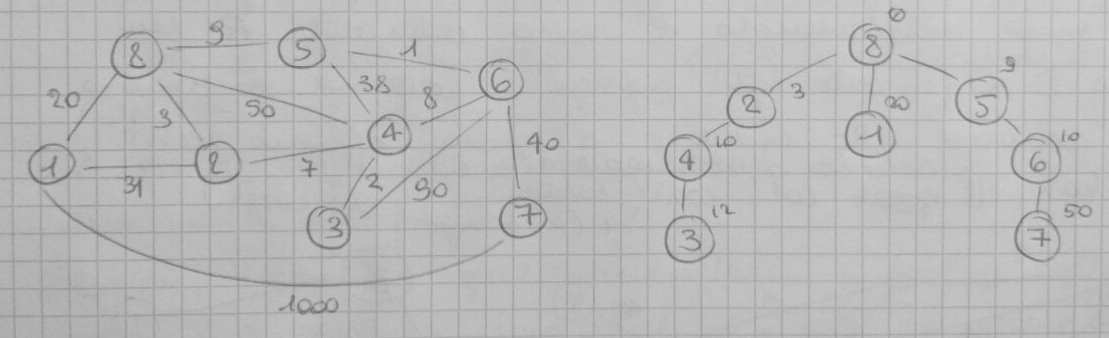 8 9 5 1 6
20 3 50 38 8
1 31 2 7 4 40
2 90
3 7
1000
8 0
2 3 1 20 5 9
4 10 6 10
3 12 7 50